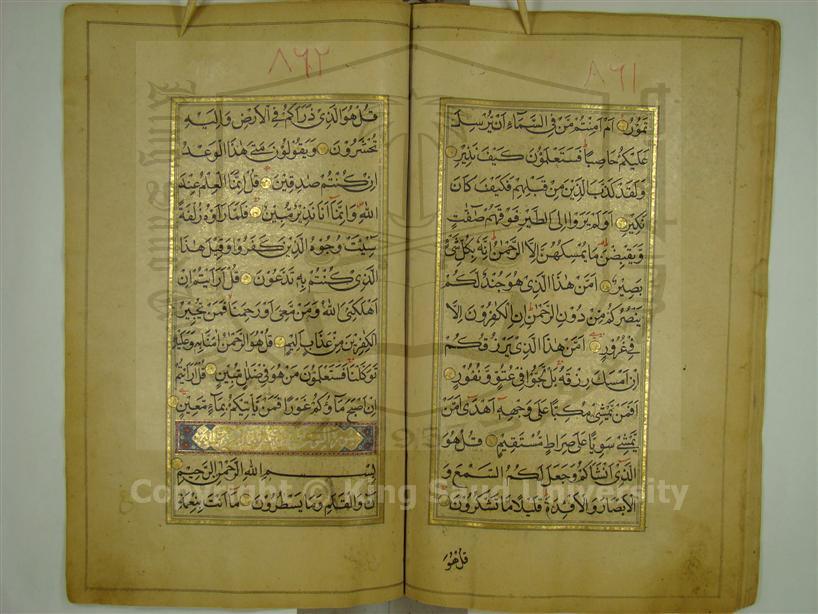 ٨٦١
تَمُورُ أَمْ أَمِنْتُمْ مَنْ فِي السَّمَاءِ أَنْ يُرْسِلَ
عَلَيْكُمْ حَاصِبًا فَسَتَعْلَمُونَ كَيْفَ نَذِيرِ
وَلَقَدْ كَذَّبَ الَّذِينَ مِنْ قَبْلِهِمْ فَكَيْفَ كَانَ
نَكِيرِ أَوَلَمْ يَرَوْا إِلَى الطَّيْرِ فَوْقَهُمْ صٰفّٰتٍ
وَيَقْبِضْنَ مَا يُمْسِكُهُنَّ إِلَّا الرَّحْمٰنُ إِنَّهُ بِكُلِّ شَيْءٍ
بَصِيرٌ أَمَّنْ هٰذَا الَّذِي هُوَ جُنْدٌ لَكُمْ
يَنْصُرُكُمْ مِنْ دُونِ الرَّحْمٰنِ إِنِ الْكٰفِرُونَ إِلَّا
فِي غُرُورٍ أَمَّنْ هٰذَا الَّذِي يَرْزُقُكُمْ
إِنْ أَمْسَكَ رِزْقَهُ بَلْ لَجُّوا فِي عُتُوٍّ وَنُفُورٍ
أَفَمَنْ يَمْشِي مُكِبًّا عَلَى وَجْهِهِ أَهْدَى أَمَّنْ
يَمْشِي سَوِيًّا عَلَى صِرَاطٍ مُسْتَقِيمٍ قُلْ هُوَ
الَّذِي أَنْشَأَكُمْ وَجَعَلَ لَكُمُ السَّمْعَ وَ
الْأَبْصَارَ وَالْأَفْئِدَةَ قَلِيلًا مَا تَشْكُرُونَ
قل هو
٨٦٢
قُلْ هُوَ الَّذِي ذَرَأَكُمْ فِي الْأَرْضِ وَإِلَيْهِ
تُحْشَرُونَ وَيَقُولُونَ مَتَى هٰذَا الْوَعْدُ
إِنْ كُنْتُمْ صٰدِقِينَ قُلْ إِنَّمَا الْعِلْمُ عِنْدَ
اللّٰهِ وَإِنَّمَا أَنَا نَذِيرٌ مُبِينٌ فَلَمَّا رَأَوْهُ زُلْفَةً
سِيئَتْ وُجُوهُ الَّذِينَ كَفَرُوا وَقِيلَ هٰذَا
الَّذِي كُنْتُمْ بِهِ تَدَّعُونَ قُلْ أَرَأَيْتُمْ إِنْ
أَهْلَكَنِيَ اللّٰهُ وَمَنْ مَعِيَ أَوْ رَحِمَنَا فَمَنْ يُجِيرُ
الْكٰفِرِينَ مِنْ عَذَابٍ أَلِيمٍ قُلْ هُوَ الرَّحْمٰنُ اٰمَنَّا بِهِ وَعَلَيْهِ
تَوَكَّلْنَا فَسَتَعْلَمُونَ مَنْ هُوَ فِي ضَلٰلٍ مُبِينٍ قُلْ أَرَأَيْتُمْ
إِنْ أَصْبَحَ مَاؤُكُمْ غَوْرًا فَمَنْ يَأْتِيكُمْ بِمَاءٍ مَعِينٍ
بِسْمِ اللّٰهِ الرَّحْمٰنِ الرَّحِيمِ
نٓ وَالْقَلَمِ وَمَا يَسْطُرُونَ مَا أَنْتَ بِنِعْمَةِ
Copyright © King Saud University